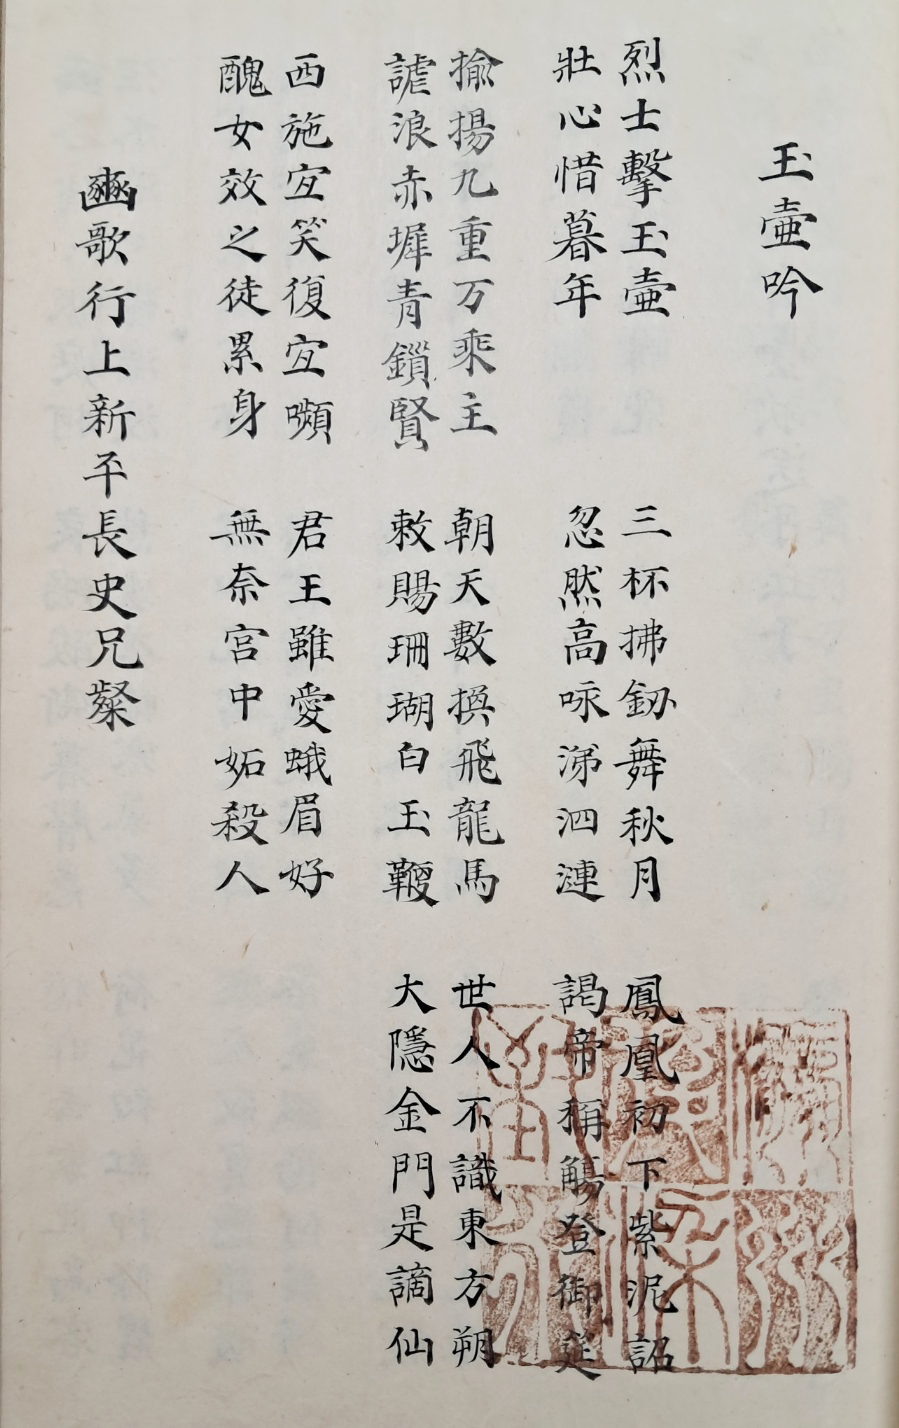 玉壷吟
烈士擊玉壷
壯心惜暮年
三杯拂釼舞秋月
忽然高咏涕泗漣
鳳凰初下紫泥詔
謁帝稱觴登御筵
揄揚九重万乘主
謔浪赤墀青鎖賢
朝天數換飛龍馬
敕賜珊瑚白玉鞭
世人不識東方朔
大隱金門是謫仙
西施宜笑復宜嚬
醜女效之徒累身
君王雖愛蛾眉好
無奈宮中妬殺人
豳歌行上新平長史兄粲